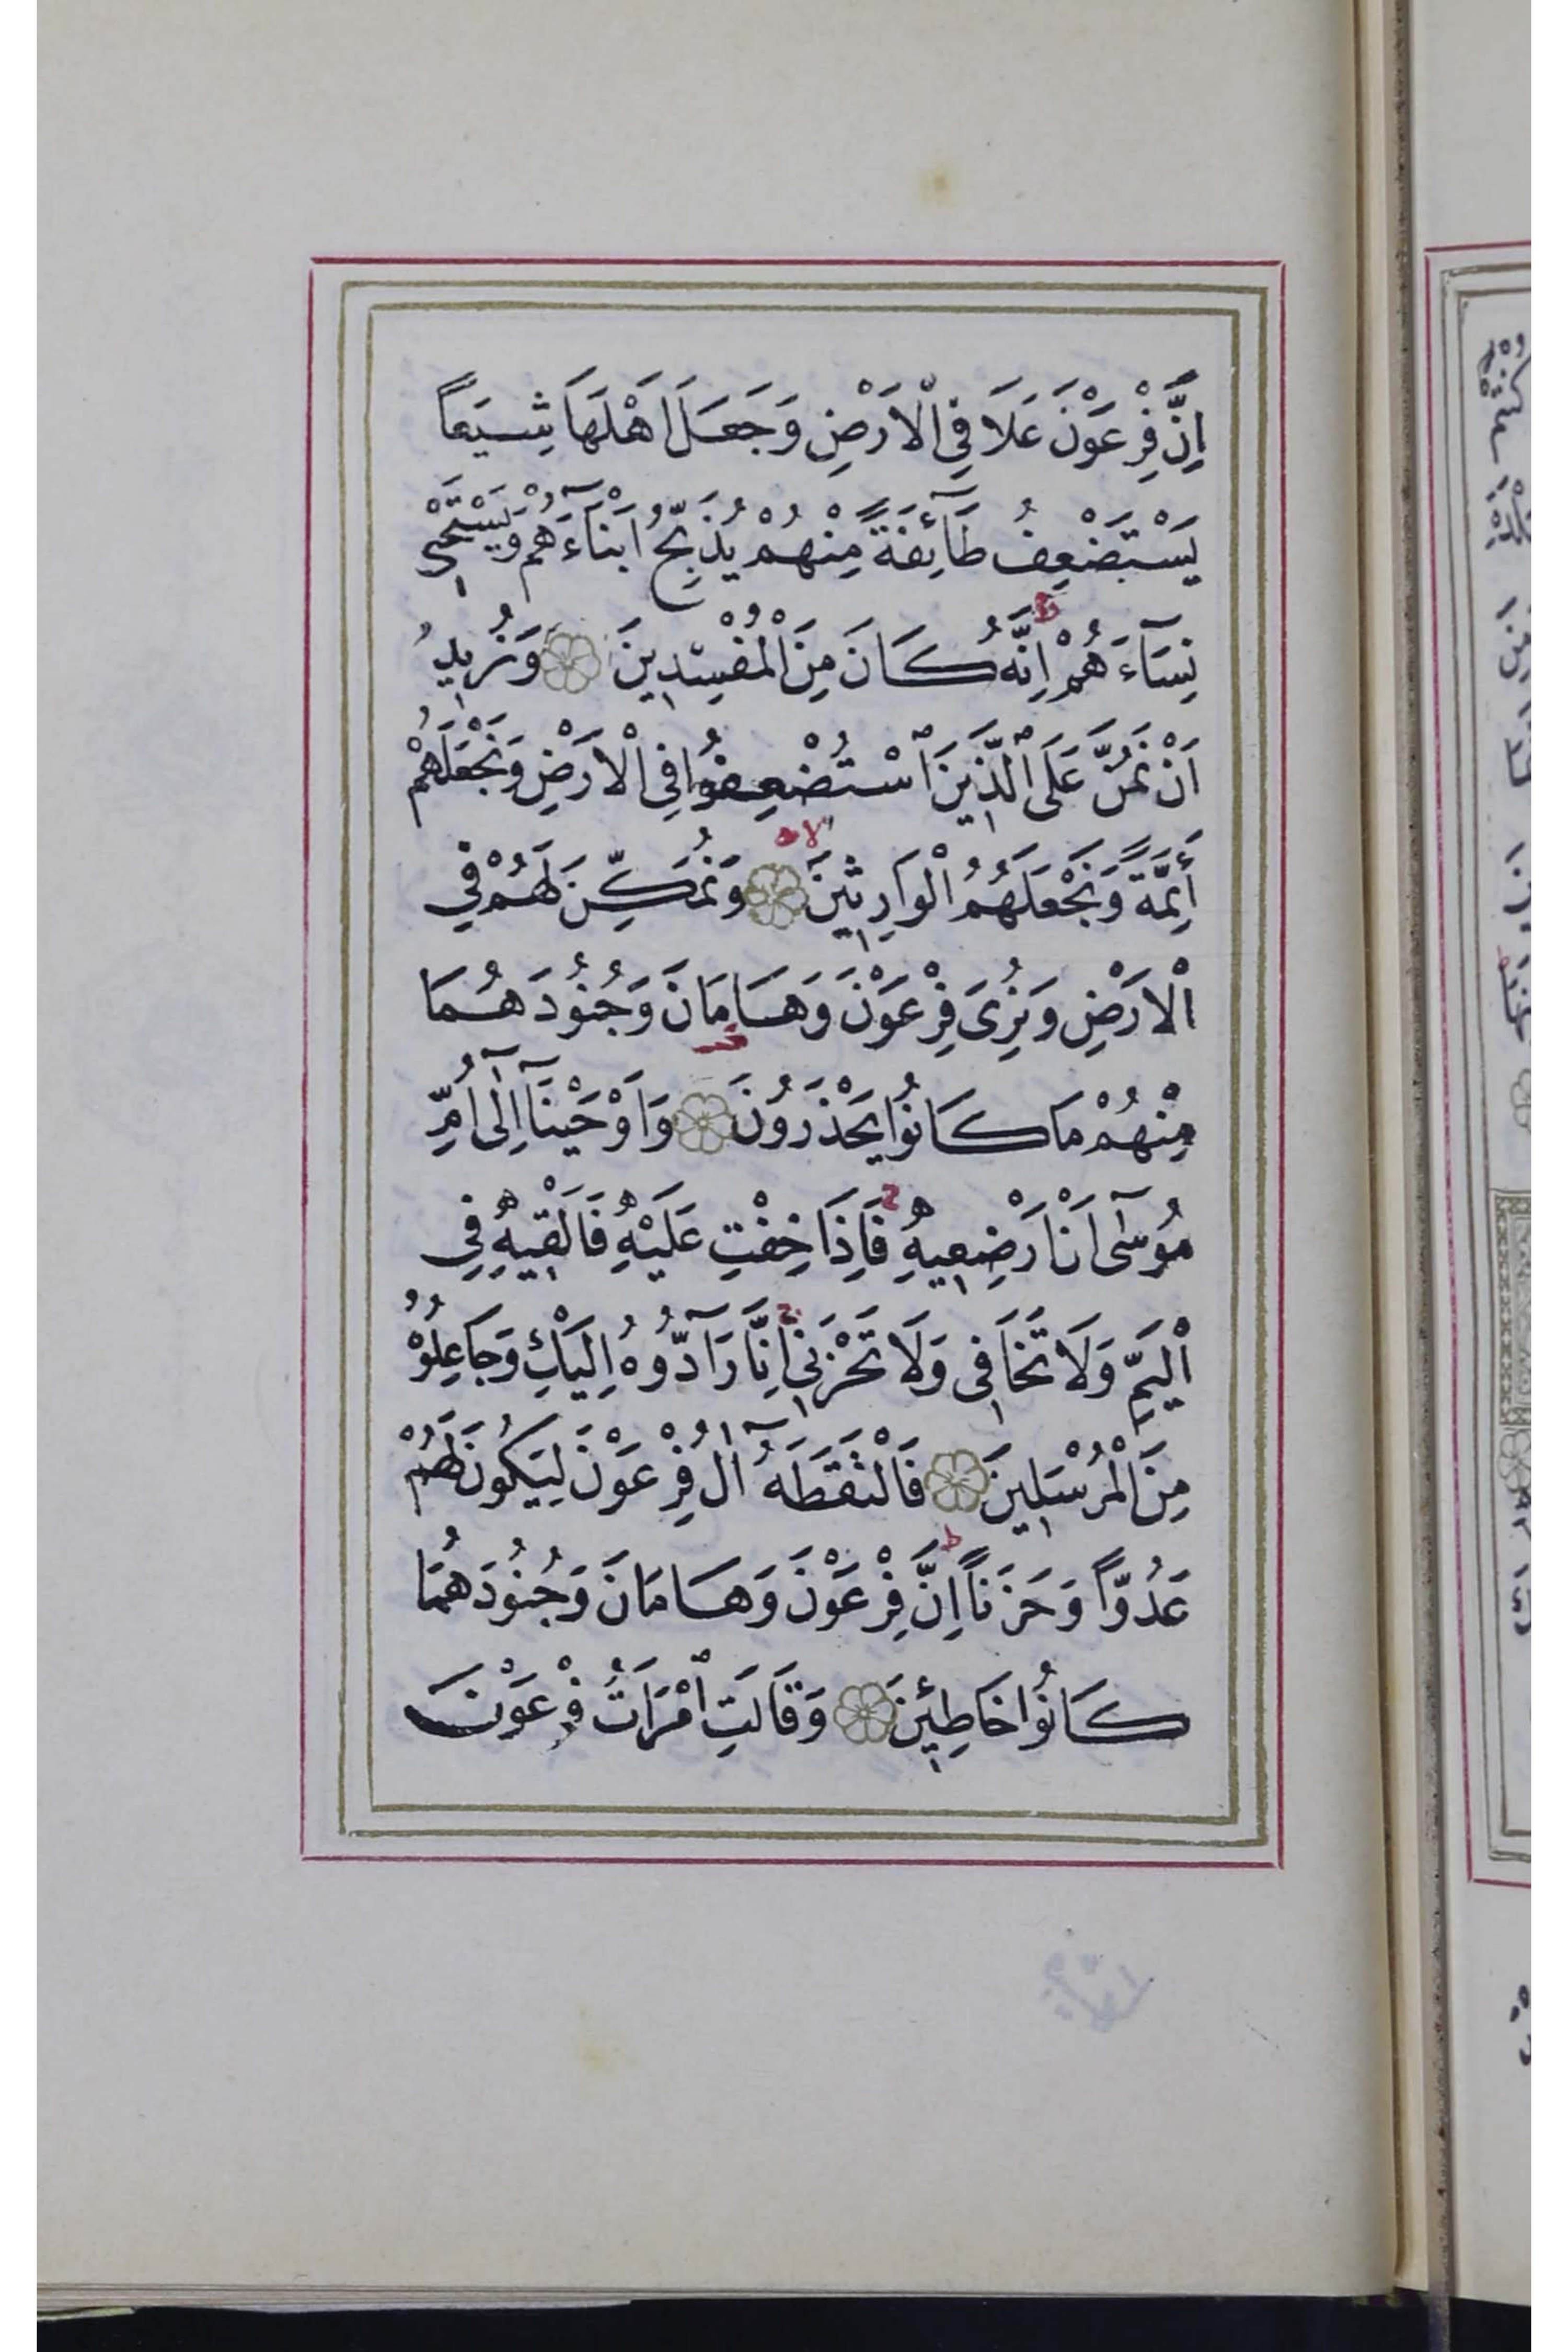 اِنَّ فِرْعَوْنَ عَلَا فِي الْاَرْضِ وَجَعَلَ اَهْلَهَا شِيَعاً
يَسْتَضْعِفُ طَآئِفَةً مِنْهُمْ يُذَبِّحُ اَبْنَآءَهُمْ وَيَسْتَحْيِ
نِسَآءَهُمْ اِنَّهُ كَانَ مِنَ الْمُفْسِدِينَ وَنُرِيدُ
اَنْ نَمُنَّ عَلَى الَّذِينَ اسْتُضْعِفُوا فِي الْاَرْضِ وَنَجْعَلَهُمْ
اَئِمَّةً وَنَجْعَلَهُمُ الْوَارِثِينَ وَنُمَكِّنَ لَهُمْ فِي
الْاَرْضِ وَنُرِيَ فِرْعَوْنَ وَهَامَانَ وَجُنُودَهُمَا
مِنْهُمْ مَا كَانُوا يَحْذَرُونَ وَاَوْحَيْنَآ اِلٰٓى اُمِّ
مُوسٰٓى اَنْ اَرْضِعِيهِ فَاِذَا خِفْتِ عَلَيْهِ فَاَلْقِيهِ فِي
الْيَمِّ وَلَا تَخَافِي وَلَا تَحْزَنِي اِنَّا رَآدُّوهُ اِلَيْكِ وَجَاعِلُوهُ
مِنَ الْمُرْسَلِينَ فَالْتَقَطَهُٓ اٰلُ فِرْعَوْنَ لِيَكُونَ لَهُمْ
عَدُوّاً وَحَزَناً اِنَّ فِرْعَوْنَ وَهَامَانَ وَجُنُودَهُمَا
كَانُوا خَاطِئِينَ وَقَالَتِ امْرَاَتُ فِرْعَوْنَ